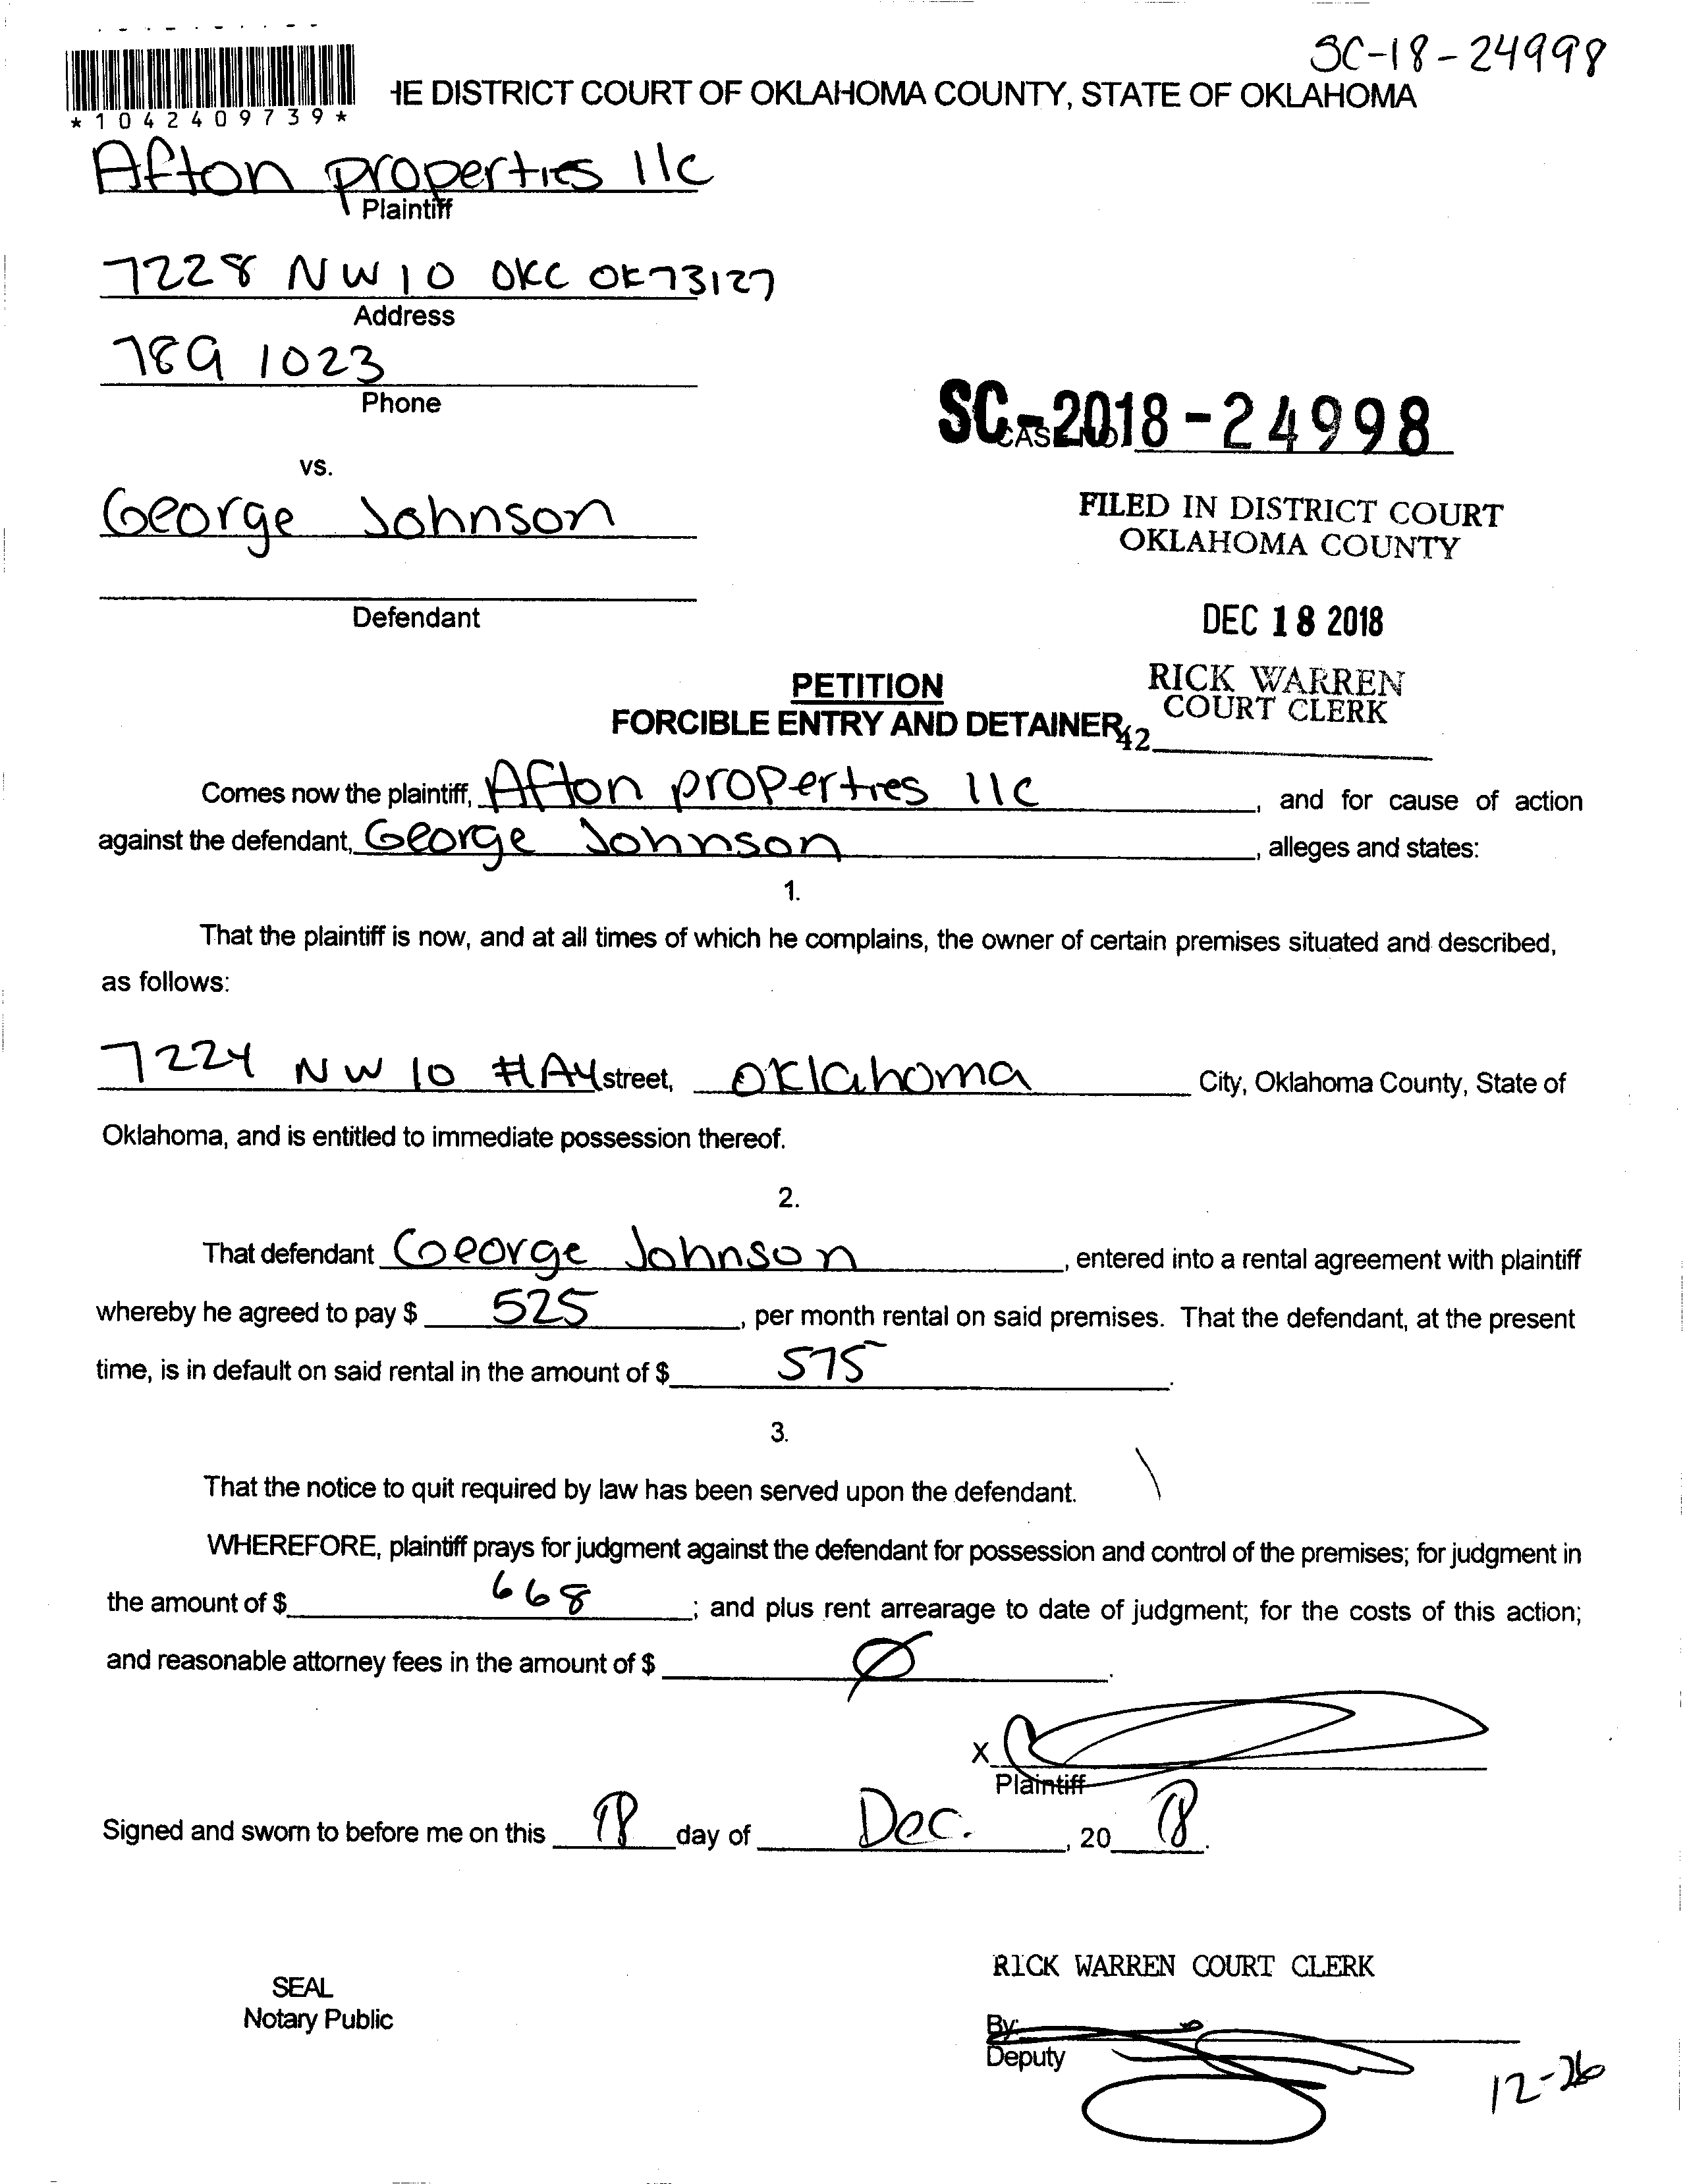 SC-18-24998
*1042409739*
HE DISTRICT COURT OF OKLAHOMA COUNTY, STATE OF OKLAHOMA
Afton properties llc
Plaintiff
7228 NW 10 OKC OK 73127
Address
789 1023
Phone
SC-2018-24998
vs.
George Johnson
FILED IN DISTRICT COURT
OKLAHOMA COUNTY
Defendant
DEC 18 2018
PETITION
RICK WARREN
COURT CLERK
FORCIBLE ENTRY AND DETAINER
42
Comes now the plaintiff, Afton properties llc, and for cause of action
against the defendant, George Johnson, alleges and states:
1.
That the plaintiff is now, and at all times of which he complains, the owner of certain premises situated and described,
as follows:
7224 NW 10 #A4 street, Oklahoma City, Oklahoma County, State of
Oklahoma, and is entitled to immediate possession thereof.
2.
That defendant George Johnson, entered into a rental agreement with plaintiff
whereby he agreed to pay $ 525, per month rental on said premises. That the defendant, at the present
time, is in default on said rental in the amount of $ 575.
3.
That the notice to quit required by law has been served upon the defendant.
WHEREFORE, plaintiff prays for judgment against the defendant for possession and control of the premises; for judgment in
the amount of $ 668; and plus rent arrearage to date of judgment; for the costs of this action;
and reasonable attorney fees in the amount of $ Ø.
X
Plaintiff
Signed and sworn to before me on this 18 day of Dec., 20 18.
RICK WARREN COURT CLERK
SEAL
Notary Public
By:
Deputy
12-26